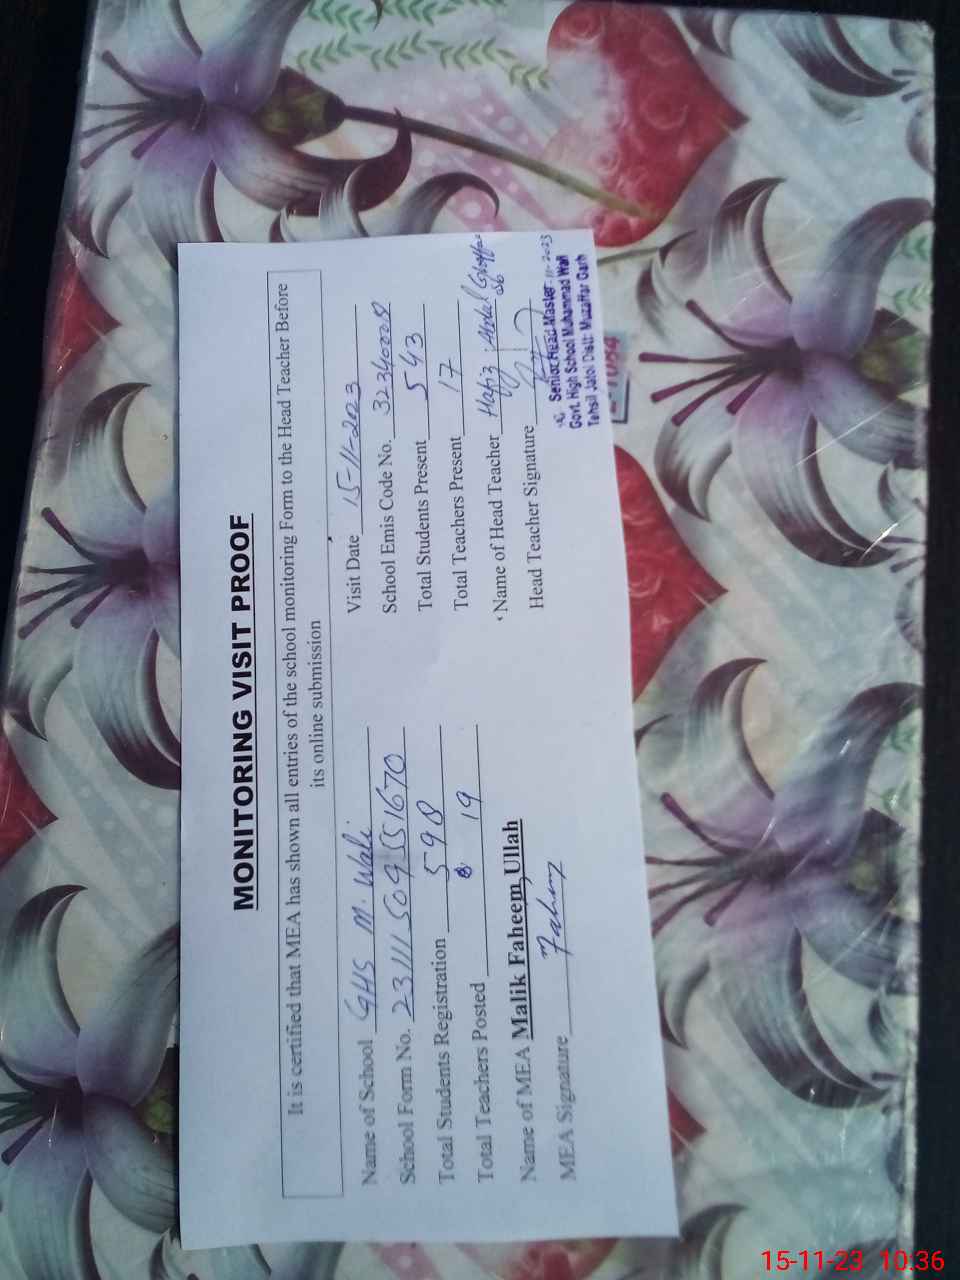 MONITORING VISIT PROOF
It is certified that MEA has shown all entries of the school monitoring Form to the Head Teacher Before
its online submission
Name of School GHS M. Wali
Visit Date 15-11-2023
School Form No. 23111509551670
School Emis Code No. 32340008
Total Students Registration 598
Total Students Present 543
Total Teachers Posted 19
Total Teachers Present 17
Name of MEA Malik Faheem Ullah
Name of Head Teacher Hafiz Abdul Ghaffar
MEA Signature Faheem
Head Teacher Signature
Senior Head Master 11-2023
Govt. High School Muhammad Wali
Tehsil Jatoi Distt: Muzaffar Garh
15-11-23 10:36